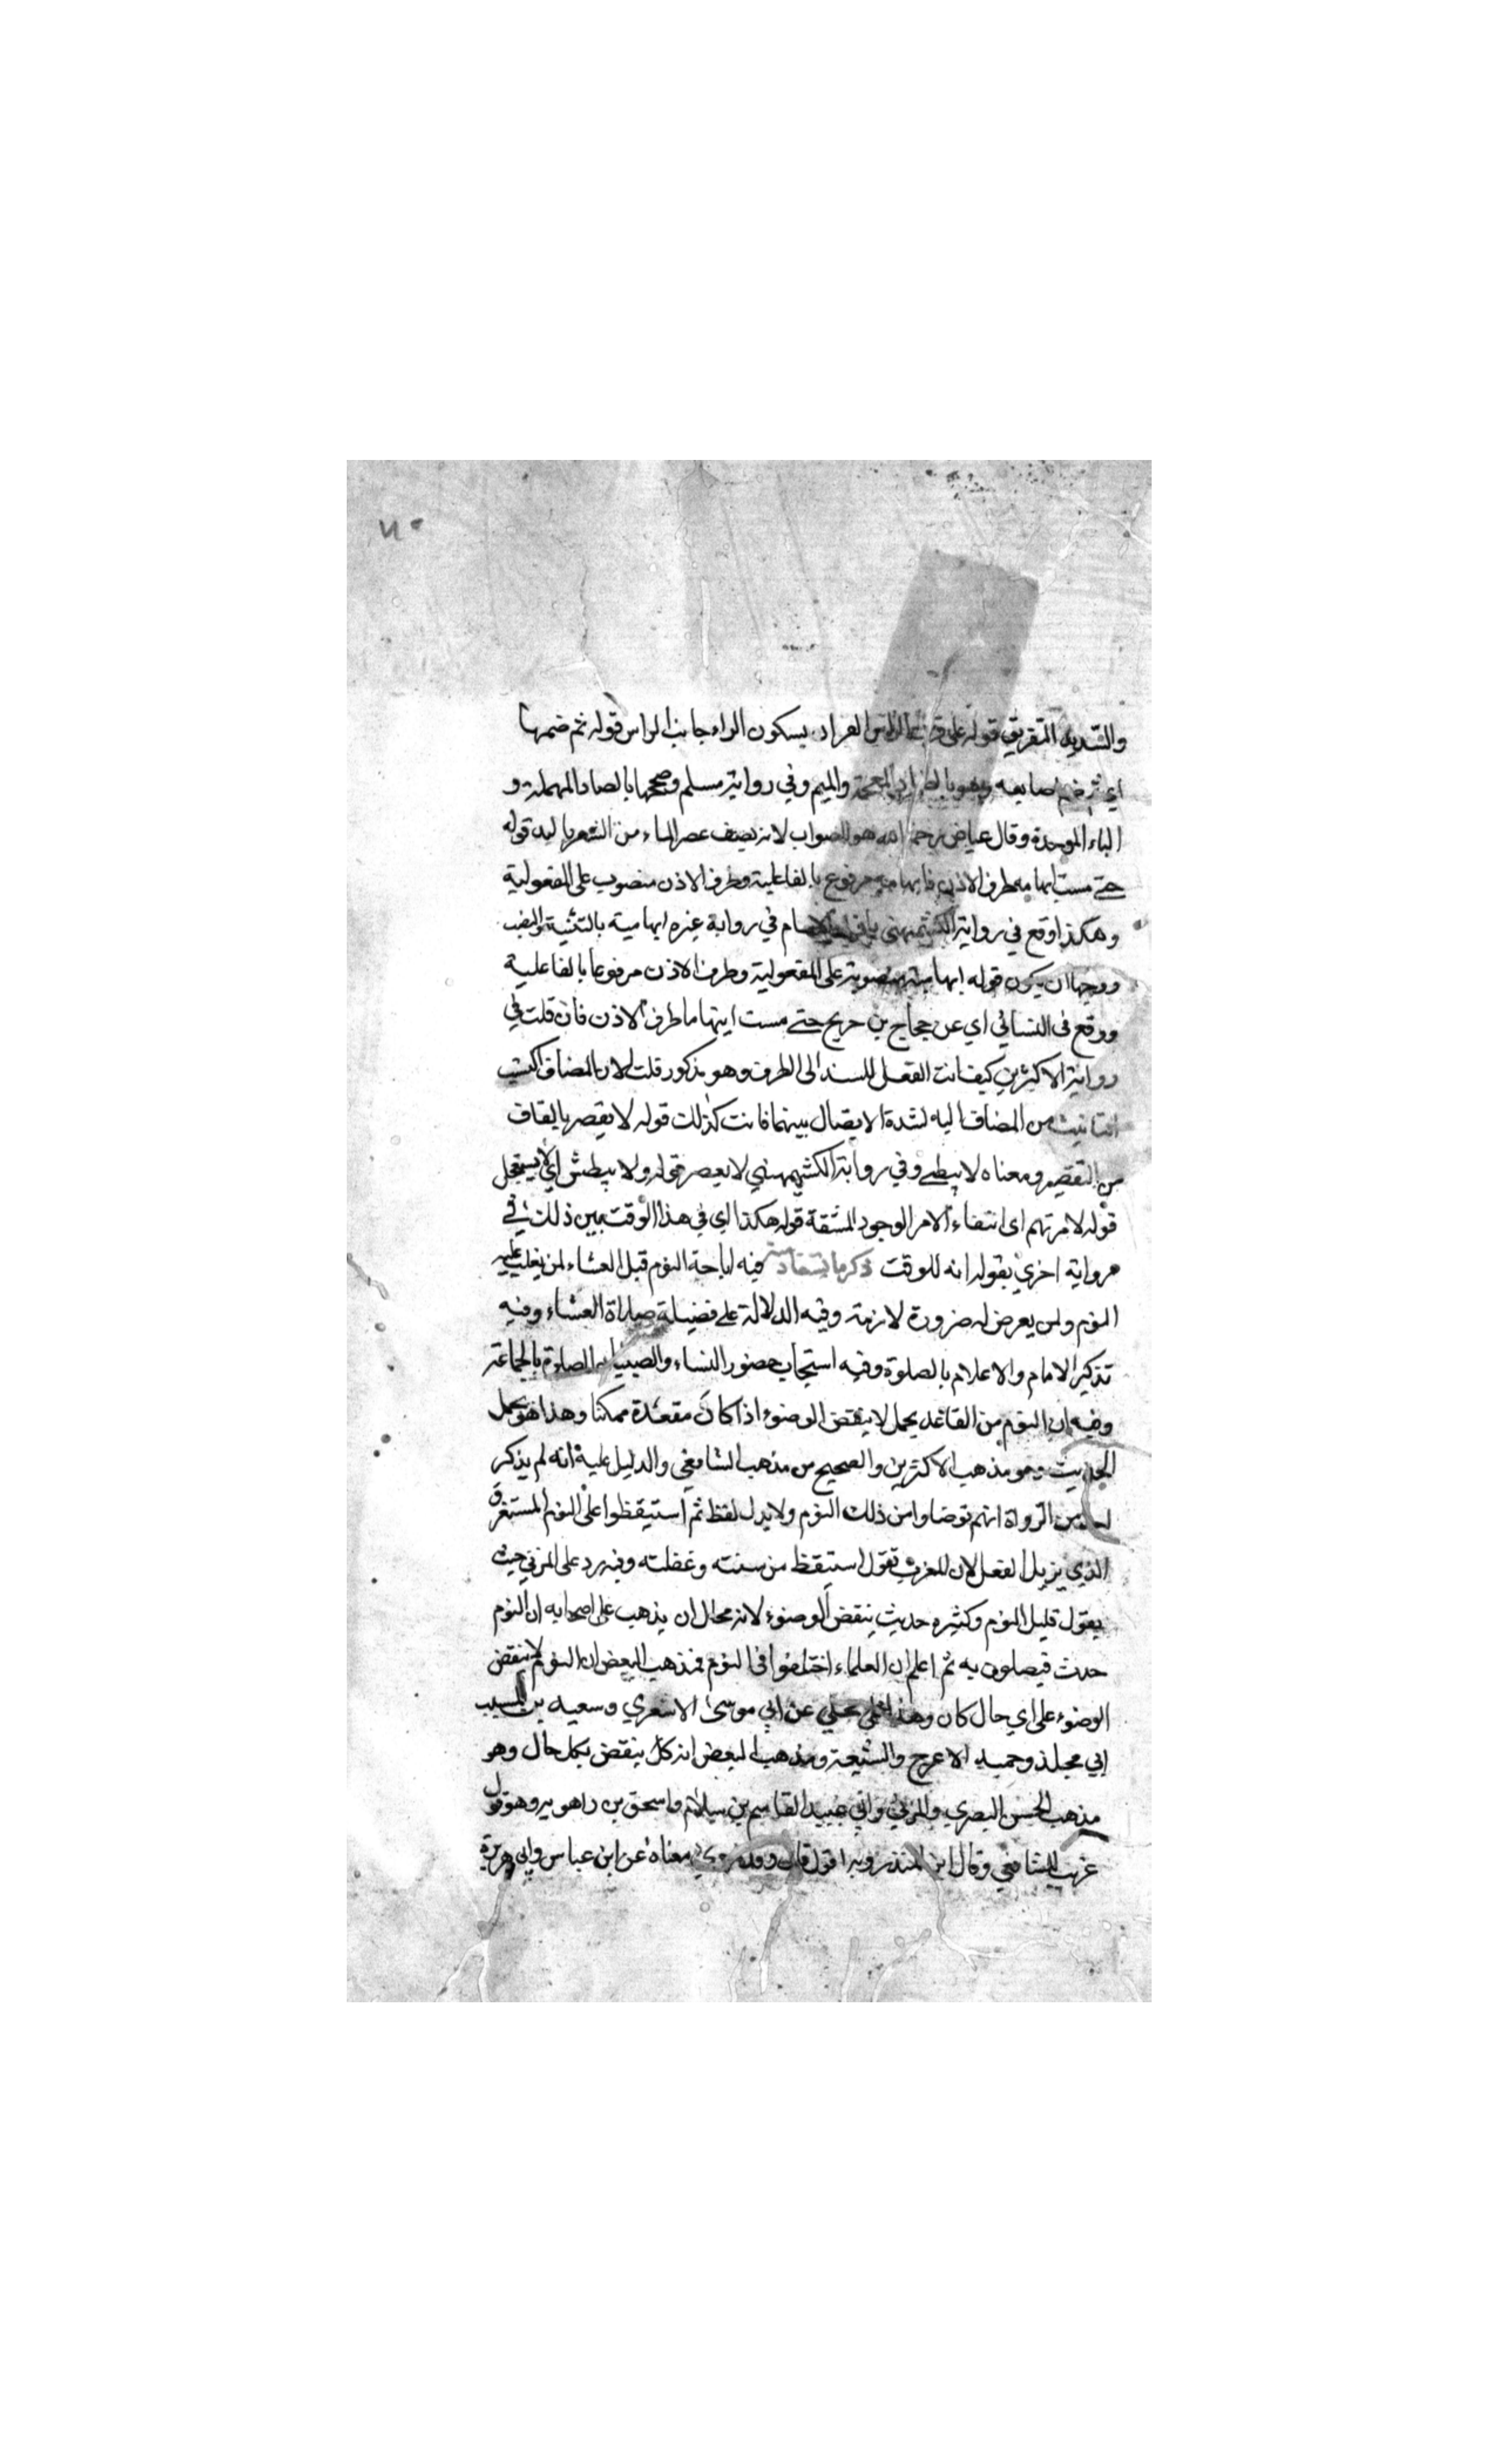 والتبديد التفريق قوله على قرن الراس القران بسكون الراء جانب الراس قوله ثم ضمها
اي ثم ضم اصابعه وهو بالضاد المعجمة والميم وفي رواية مسلم وصحها بالصاد المهملة و
الباء الموحدة وقال عياض رحمه الله هو الصواب لانه يصف عصر الماء من الشعر باليد قوله
حتى مست ابهامه طرف الاذن فابهامه مرفوع بالفاعلية وطرف الاذن منصوب على المفعولية
وهكذا وقع في رواية الكشميهني بافراد الابهام في رواية غيره ابهاميه بالتثنية والنصب
ووجهها ان يكون قوله ابهاميه منصوبة على المفعولية وطرف الاذن مرفوعا بالفاعلية
ووقع في النسائي اي عن حجاج بن جريج حتى مست ابهاما طرف الاذن فان قلت في
رواية الاكثرين كيف انث الفعل المسند الى الطرف وهو مذكور قلت لان المضاف اكتسب
التانيث من المضاف اليه لشدة الايصال بينهما فانث كذلك قوله لا يقصر بالقاف
من التقصير ومعناه لا يبطى وفي رواية الكشميهني لا يعصر قوله ولا يبطش اي لا يستعجل
قوله لامرتهم اى انتفاء الامر الوجود المشقة قوله هكذا اي في هذا الوقت بين ذلك في
رواية اخري بقوله انه للوقت ذكر ما يستفاد منه فيه اباحة النوم قبل العشاء لمن يغلب عليه
النوم ولمن يعرض له ضرورة لازمة وفيه الدلالة على فضيلة صلاة العشاء وفيه
تذكير الامام والاعلام بالصلوة وفيه استحباب حضور النساء والصبيان الصلوة بالجماعة
وفيه ان النوم من القاعد يحمل لا ينقض الوضوء اذا كان مقعدة ممكنا وهذا هو يحمل
الحديث وهو مذهب الاكثرين والصحيح من مذهب الشافعي والدليل عليه انه لم يذكر
احد من الرواة انهم توضاوا من ذلك النوم ولا يدل لفظ ثم استيقظوا على النوم المستغرق
الذي يزيل الفعل لان العرب تقول استيقظ من سنته وغفلته وفيه رد على المزني حيث
يقول قليل النوم وكثيره حديث ينقض الوضوء لانه محال ان يذهب على اصحابه ان النوم
حدث فيصلون به ثم اعلم ان العلماء اختلفوا في النوم فمذهب البعض ان النوم لا ينقض
الوضوء على اي حال كان وهذا محكي عن ابي موسى الاشعري وسعيد بن المسيب
ابي مجلذ وحميد الاعرج والشيعة ومذهب البعض انه كل ينقض بكل حال وهو
مذهب الحسن البصري والمزني وابي عبيد القاسم بن سلام واسحق بن راهويه وهو قول
غريب للشافعي وقال ابن المنذر وبه اقول قال وقد روي معناه عن ابن عباس وابي هريرة